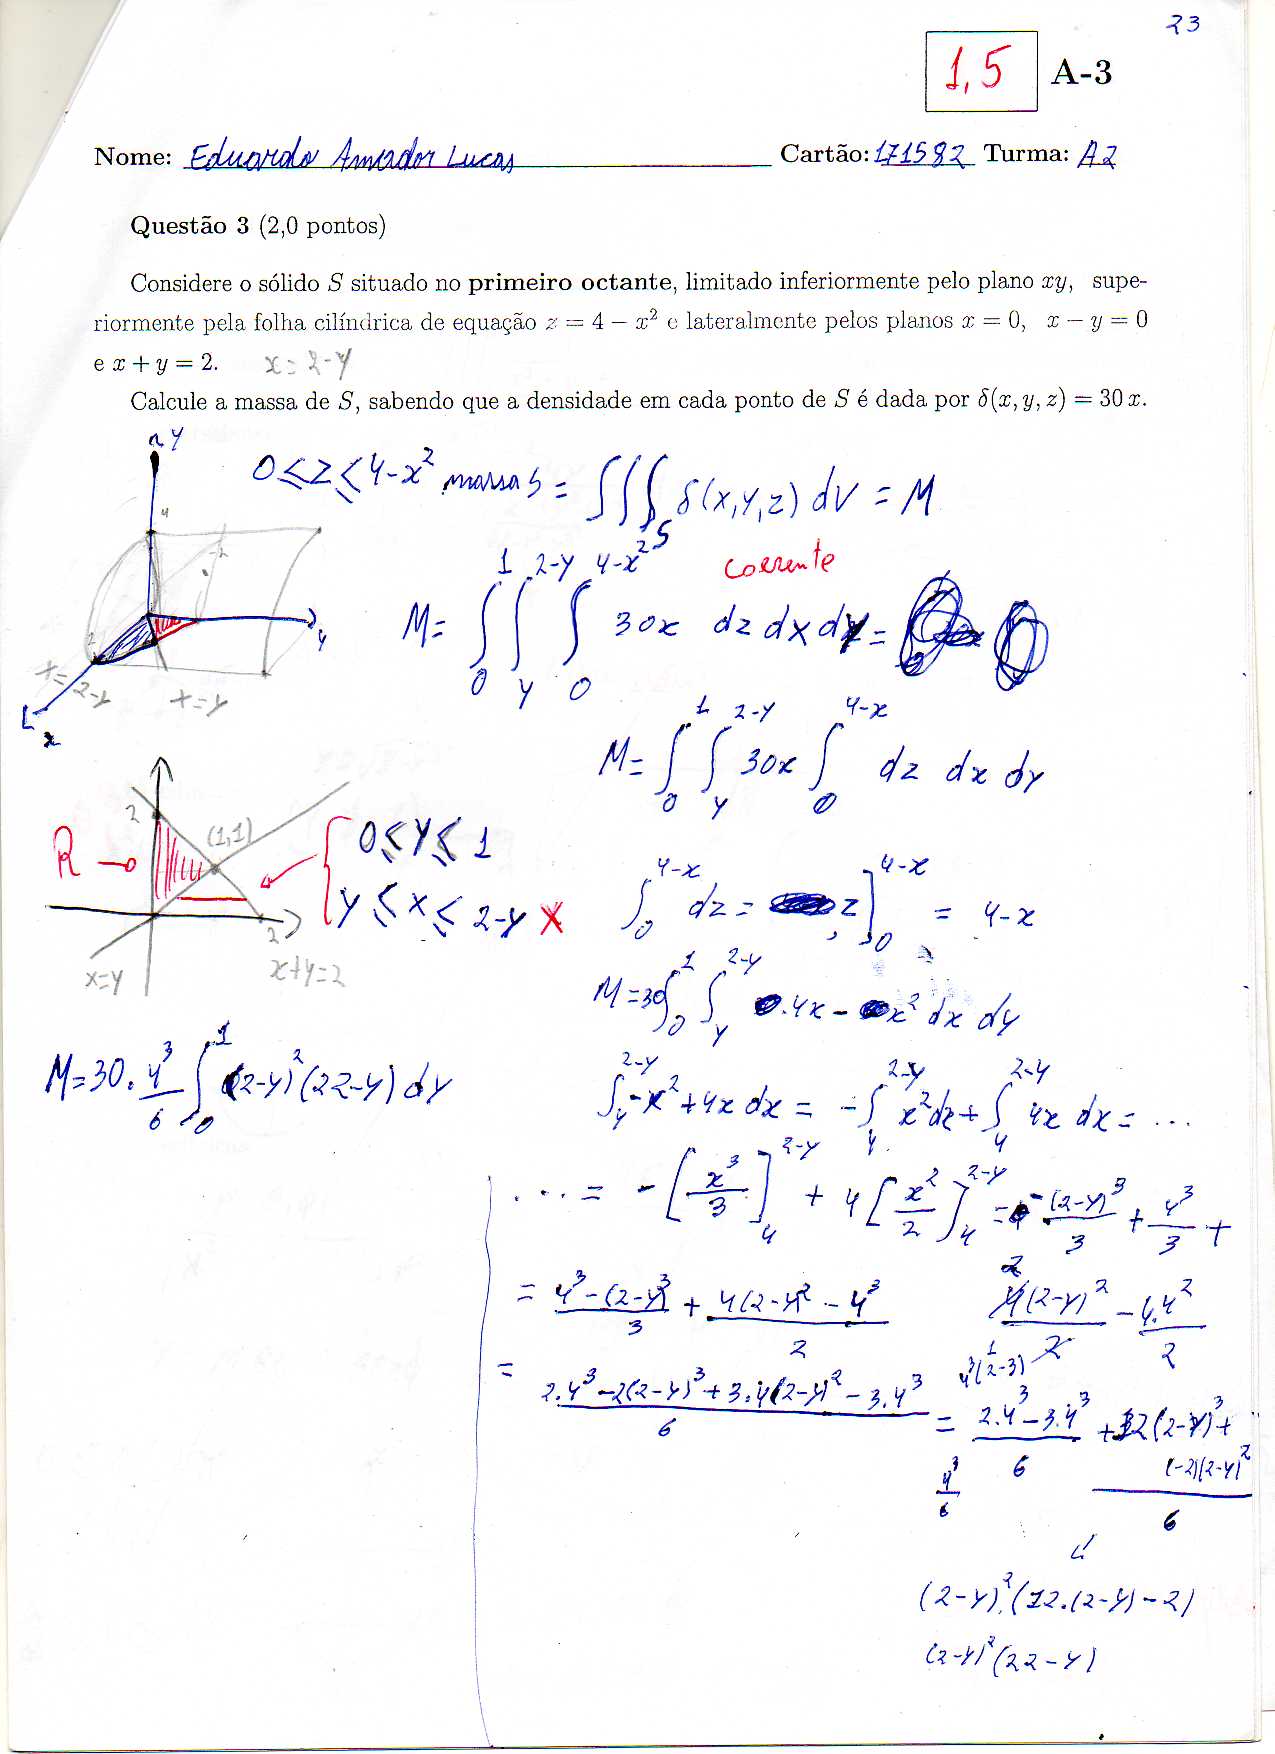 23
1,5 A-3
Nome: Eduardo Amador Lucas Cartão: 171582 Turma: A2
Questão 3 (2,0 pontos)
Considere o sólido S situado no primeiro octante, limitado inferiormente pelo plano xy, supe-
riormente pela folha cilíndrica de equação z = 4 − x² e lateralmente pelos planos x = 0, x − y = 0
e x + y = 2. x = 2-y
Calcule a massa de S, sabendo que a densidade em cada ponto de S é dada por δ(x, y, z) = 30 x.
y
4
2
y
x=2-y
x=y
x
0 ≤ z ≤ 4-x² massa S = ∫∫∫_S δ(x,y,z) dV = M
coerente
M = ∫_0^1 ∫_y^{2-y} ∫_0^{4-x²} 30x dz dx dy =
M = ∫_0^1 ∫_y^{2-y} 30x ∫_0^{4-x} dz dx dy
2
(1,1)
R
2
x=y
x+y=2
0 ≤ y ≤ 1
y ≤ x ≤ 2-y X
∫_0^{4-x} dz = z]_0^{4-x} = 4-x
M = 30 ∫_0^1 ∫_y^{2-y} .4x - x² dx dy
M = 30. y³/6 ∫_0^1 (2-y)² (22-y) dy
∫_y^{2-y} -x²+4x dx = -∫_y^{2-y} x² dx + ∫_y^{2-y} 4x dx = ...
... = -[x³/3]_y^{2-y} + 4[x²/2]_y^{2-y} = -(2-y)³/3 + y³/3 +
2
4(2-y)²/2 - 4.y²/2
1
= y³-(2-y)³/3 + 4(2-y)² - y³/2
y³(2-3)
= 2.y³-2(2-y)³+3.4(2-y)²-3.y³/6
= 2.y³-3.y³/6 + 12(2-y)³+(-2)(2-y)²/6
y³/6
(2-y)².(12.(2-y)-2)
(2-y)²(22-y)